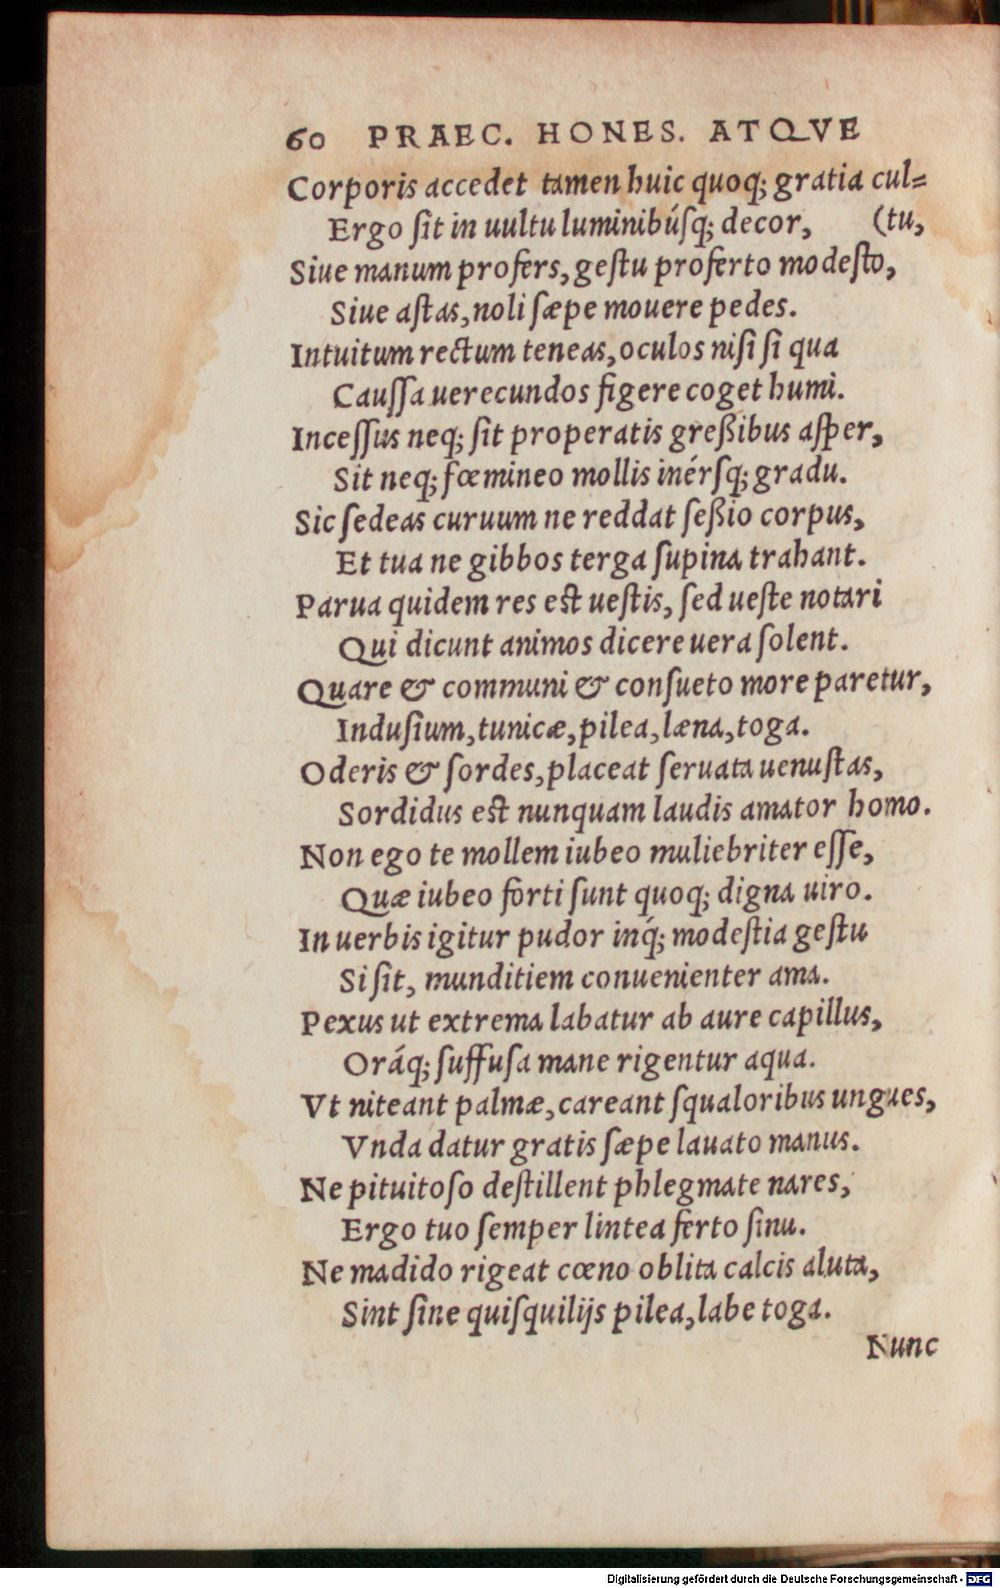 60 PRAEC. HONES. ATQVE
Corporis accedet tamen huic quoq; gratia cul=
Ergo ſit in uultu luminibúſq; decor, (tu,
Siue manum profers, geſtu proferto modeſto,
Siue aſtas, noli ſæpe mouere pedes.
Intuitum rectum teneas, oculos niſi ſi qua
Cauſſa uerecundos figere coget humi.
Inceſſus neq; ſit properatis greßibus aſper,
Sit neq; fœmineo mollis inérſq; gradu.
Sic ſedeas curuum ne reddat ſeßio corpus,
Et tua ne gibbos terga ſupina trahant.
Parua quidem res eſt ueſtis, ſed ueſte notari
Qui dicunt animos dicere uera ſolent.
Quare & communi & conſueto more paretur,
Induſium, tunicæ, pilea, læna, toga.
Oderis & ſordes, placeat ſeruata uenuſtas,
Sordidus eſt nunquam laudis amator homo.
Non ego te mollem iubeo muliebriter eſſe,
Quæ iubeo forti ſunt quoq; digna uiro.
In uerbis igitur pudor inq́; modeſtia geſtu
Si ſit, munditiem conuenienter ama.
Pexus ut extrema labatur ab aure capillus,
Oráq; ſuffuſa mane rigentur aqua.
Vt niteant palmæ, careant ſqualoribus ungues,
Vnda datur gratis ſæpe lauato manus.
Ne pituitoſo deſtillent phlegmate nares,
Ergo tuo ſemper lintea ferto ſinu.
Ne madido rigeat cœno oblita calcis aluta,
Sint ſine quiſquilijs pilea, labe toga.
Nunc
Digitalisierung gefördert durch die Deutsche Forschungsgemeinschaft - DFG